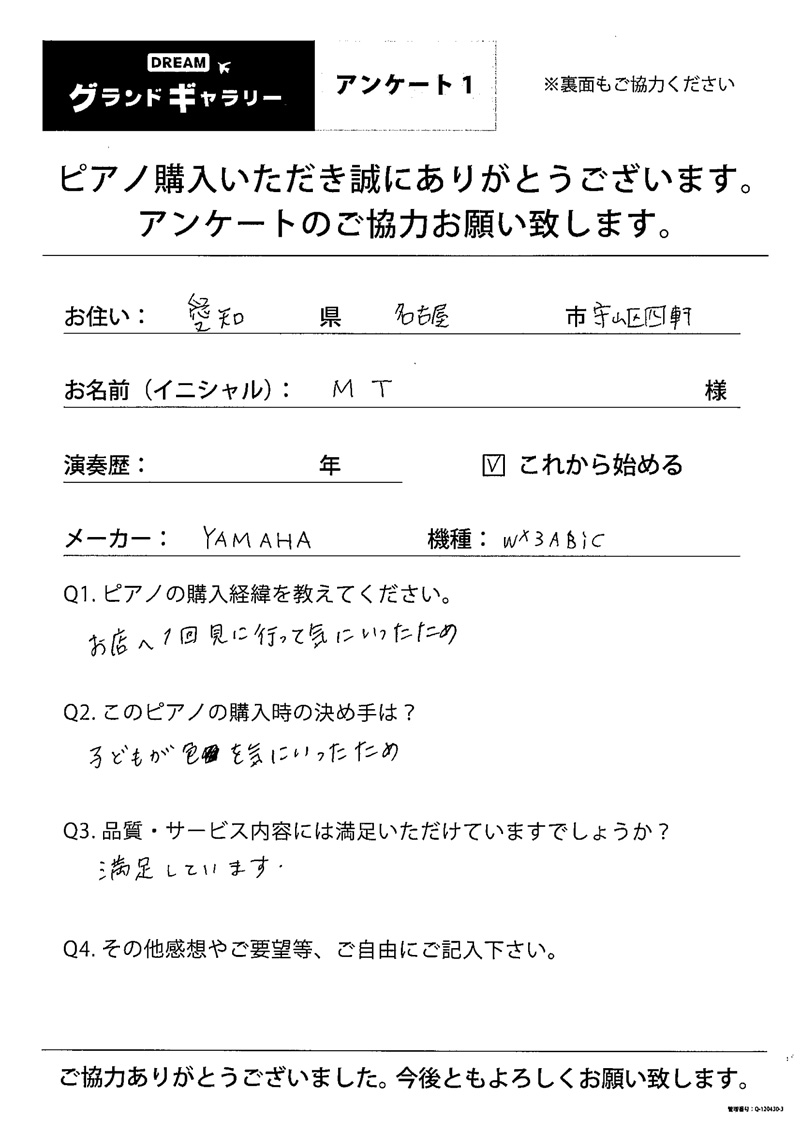 DREAM
グランドギャラリー
アンケート 1
※裏面もご協力ください
ピアノ購入いただき誠にありがとうございます。
アンケートのご協力お願い致します。
お住い： 愛知 県 名古屋 市 守山区四軒
お名前（イニシャル）： M T 様
演奏歴： 年 ☑ これから始める
メーカー： YAMAHA 機種： WX3ABiC
Q1. ピアノの購入経緯を教えてください。
お店へ1回見に行って気にいったため
Q2. このピアノの購入時の決め手は？
子どもが色を気にいったため
Q3. 品質・サービス内容には満足いただけていますでしょうか？
満足しています.
Q4. その他感想やご要望等、ご自由にご記入下さい。
ご協力ありがとうございました。今後ともよろしくお願い致します。
管理番号：Q-120430-3